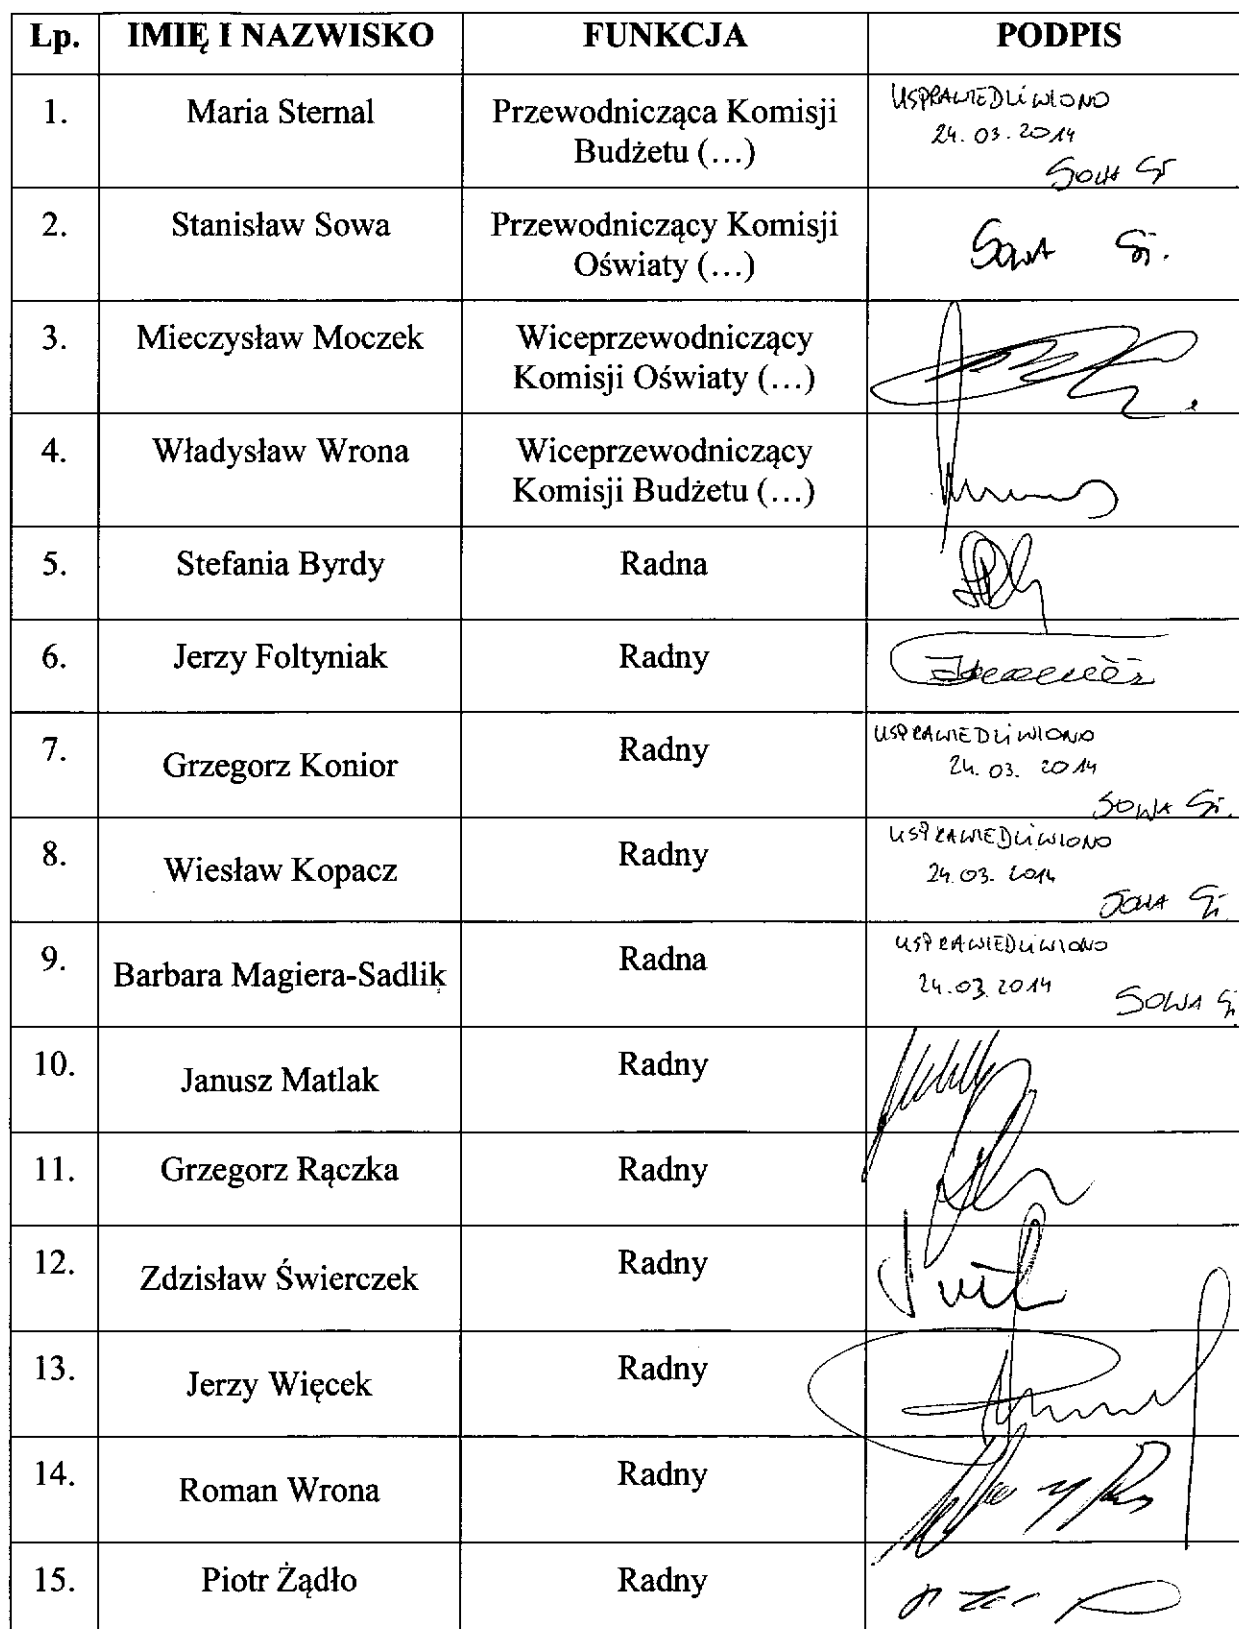 Lp. IMIĘ I NAZWISKO FUNKCJA PODPIS
1. Maria Sternal Przewodnicząca Komisji USPRAWIEDLIWIONO
Budżetu (…) 24.03.2014
SOWA St
2. Stanisław Sowa Przewodniczący Komisji
Oświaty (…) Sowa St.
3. Mieczysław Moczek Wiceprzewodniczący
Komisji Oświaty (…)
4. Władysław Wrona Wiceprzewodniczący
Komisji Budżetu (…)
5. Stefania Byrdy Radna
6. Jerzy Foltyniak Radny
7. Grzegorz Konior Radny USPRAWIEDLIWIONO
24.03.2014
SOWA St.
8. Wiesław Kopacz Radny USPRAWIEDLIWIONO
24.03.2014
SOWA St
9. Barbara Magiera-Sadlik Radna USPRAWIEDLIWIONO
24.03.2014
SOWA St
10. Janusz Matlak Radny
11. Grzegorz Rączka Radny
12. Zdzisław Świerczek Radny
13. Jerzy Więcek Radny
14. Roman Wrona Radny
15. Piotr Żądło Radny